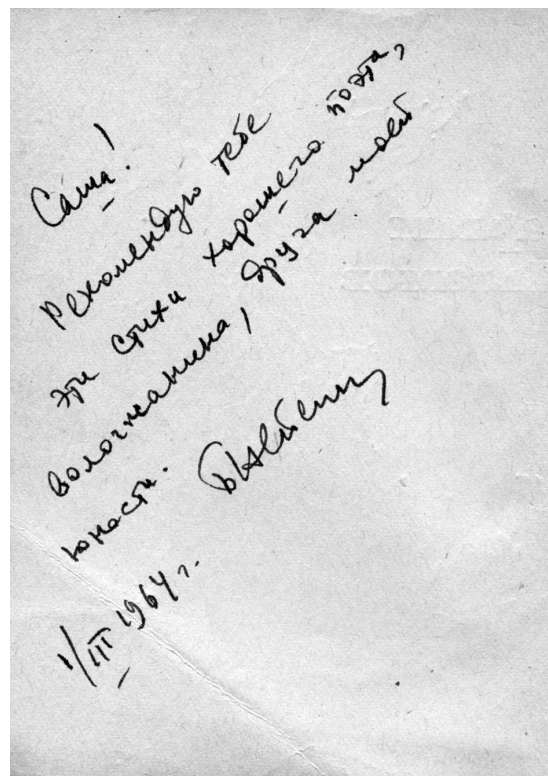 Саша!
Рекомендую тебе
эти стихи хорошего поэта,
вологжанина, друга моей
юности.
1/III 1964 г.